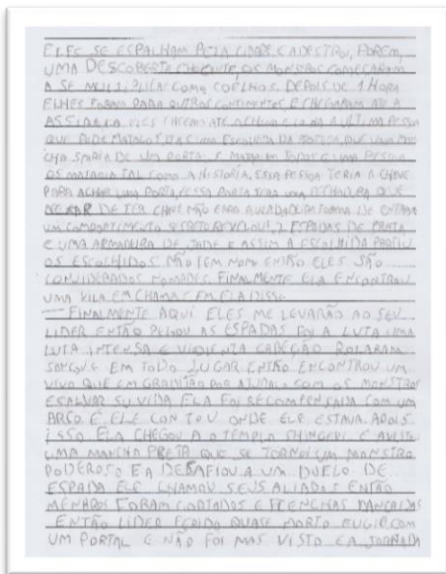 ELES SE ESPALHAM PELA CIDADE E ADESTROI, POREM,
UMA DESCOBERTA CHOCANTE, OS MONSTROS COMEÇARAM
A SE MULTIPLICAR COMO COELHOS. DEPOIS DE 1 HORA
ELHES FORAM PARA OUTROS CONTINENTES E CHEGARAM ATE A
ELES CHEGAM ATE A CHINA E LA HA A ULTIMA PESSOA
QUE PODE MATALOS, ELA É UMA
DE UM PORTAL E TODOS E UMA PESSOA
OS MATARIA TAL COMO A HISTORIA, ESSA PESSOA TERIA A CHAVE
PARA ACHAR UMA PORTA, ESSA PORTA TERA UMA FECHADURA QUE
DE TER CHAVE NÃO FORMA DE ENTRAR
UM COMPARTIMENTO SECRETO REVELOU, 2 ESPADAS DE PRATA
E UMA ARMADURA DE JADE E ASSIM A ESCOLHIDA PARTIU
OS ESCOLHIDOS NÃO TEM NOME ENTÃO ELES SÃO
CONSIDERADOS NOMADES. FINALMENTE ELA ENCONTROU
UMA VILA EM CHAMAS EM ELA DISSE
— FINALMENTE AQUI ELES ME LEVARÃO AO SEU
LIDER ENTÃO PEGOU AS ESPADAS FOI A LUTA UMA
LUTA INTENSA E VIOLENTA CABEÇÃO ROLARAM
SANGUE EM TODO LUGAR ENTÃO ENCONTROU UM
VIVO QUE EM GRATIDÃO POR AJUDALA COM OS MONSTROS
E SALVAR SU VIDA ELA FOI RECOMPENSADA COM UM
ARCO E ELE CONTOU ONDE ELE ESTAVA. APOIS
ISSO ELA CHEGOU A O TEMPLO SHINGEPI E AVISTA
UMA MANCHA PRETA QUE SE TORNOU UM MONSTRO
PODEROSO E A DESAFIOU A UM DUELO DE
ESPADA ELE CHAMOU SEUS ALIADOS ENTÃO
MEMBROS FORAM CORTADOS E FLENCHAS LANÇADAS
ENTÃO LIDER FERIDO QUASE MORTO FUGIR COM
UM PORTAL E NÃO FOI MAS VISTO E A JORNADA